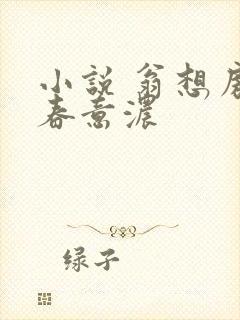 小説 翁想
春意濃
绿子